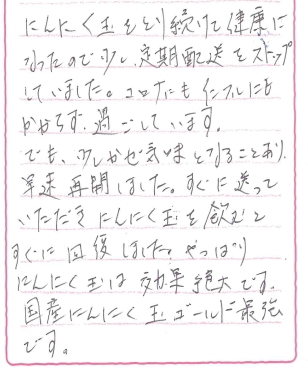 にんにく玉をとり続けて健康に
なったので少し、定期配送をストップ
していました。コロナにもインフルにも
かからず、過ごしています。
でも、少しかぜ気味となることあり、
早速再開しました。すぐに送って
いただきにんにく玉を飲むと
すぐに回復しました。やっぱり
にんにく玉は効果絶大です。
国産にんにく玉ゴールド最強
です。